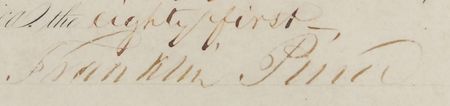 the eighty first
Franklin Pierce